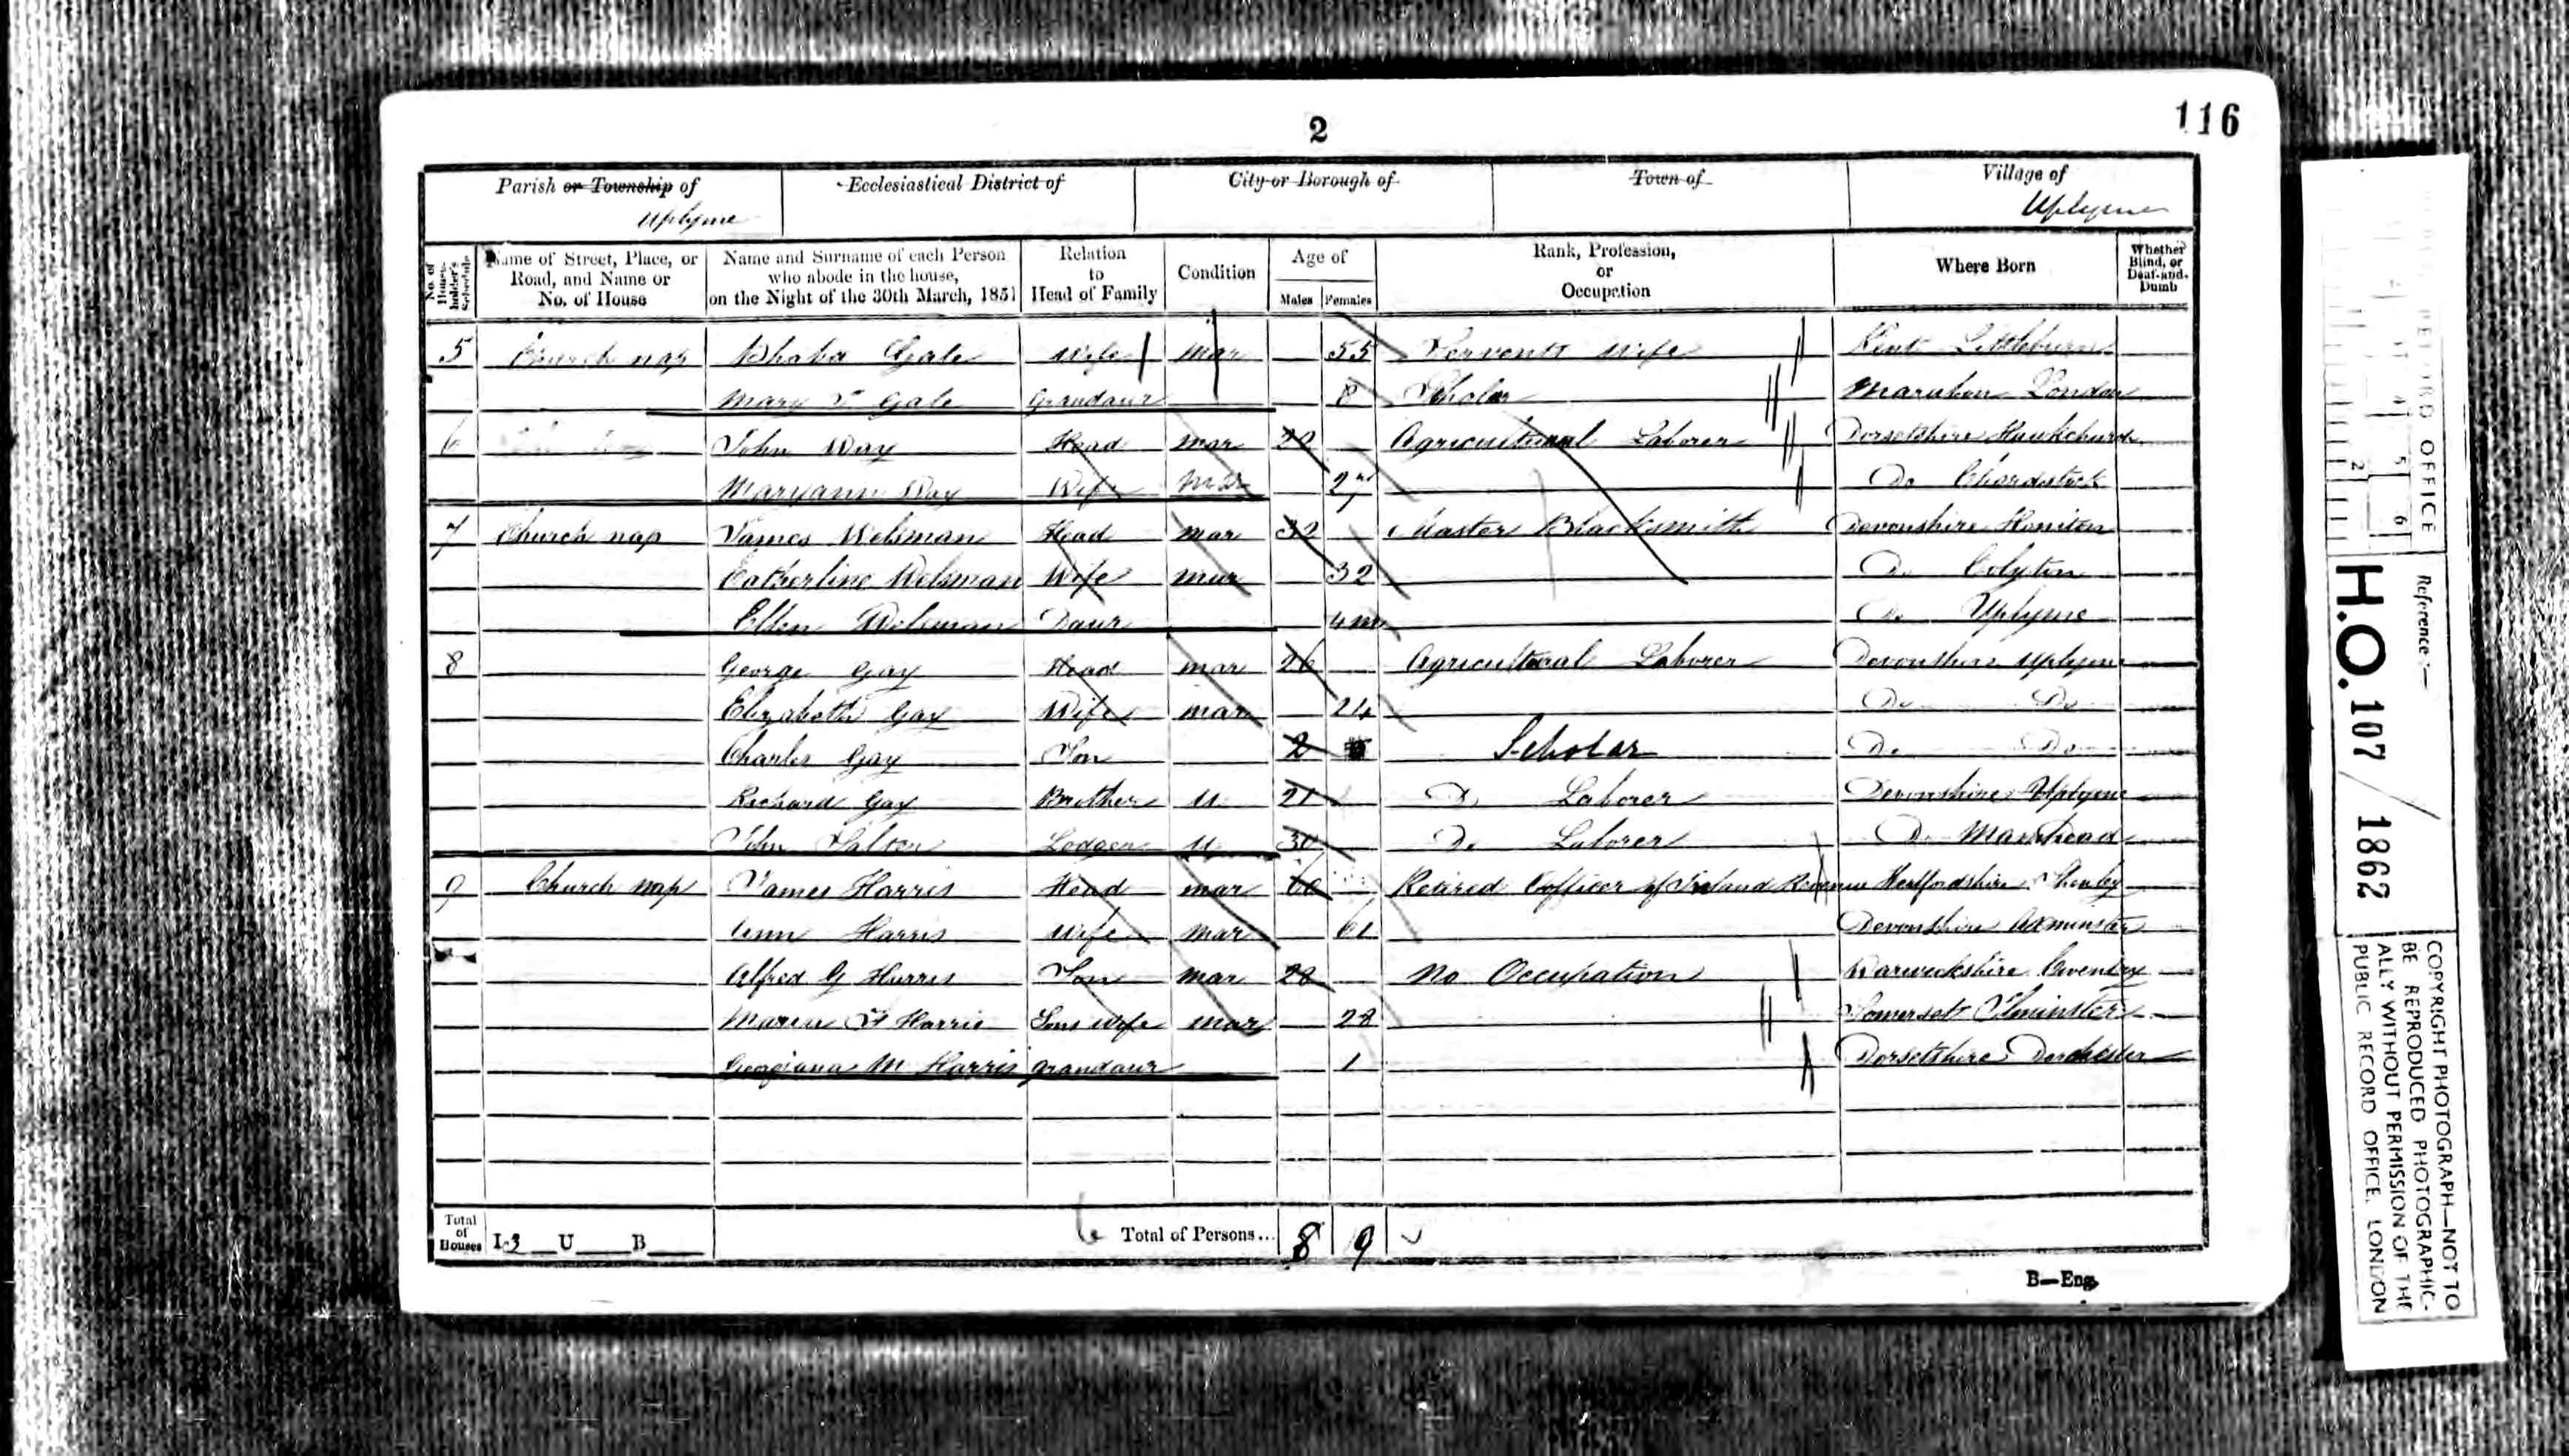 2
116
Parish or Township of
Uplyme
Ecclesiastical District of
City or Borough of
Town of
Village of
Uplyme
No. of Householder's Schedule
Name of Street, Place, or Road, and Name or No. of House
Name and Surname of each Person who abode in the house, on the Night of the 30th March, 1851
Relation to Head of Family
Condition
Age of
Males
Females
Rank, Profession, or Occupation
Where Born
Whether Blind, or Deaf-and-Dumb
5 Church nap Gale Wife mar 55 Servents Wife Kent
Mary Gale Grandaur 8 Scholar London
6 John Way Head mar Agricultural Laborer Dorsetshire Hawkchurch
Maryann Way Wife mar 27 Do Chardstock
7 Church nap James Welsman Head mar 32 Master Blacksmith Devonshire Honiton
Catherline Welsman Wife mar 32 Do Colyton
Ellen Welsman Daur 4 m Do Uplyme
8 George Gay Head mar 26 Agricultural Laborer Devonshire Uplyme
Elizabeth Gay Wife mar 24 Do Do
Charles Gay Son 2 Scholar Do Do
Richard Gay Brother U 21 Do Laborer Devonshire Uplyme
John Salter Lodger U 30 Do Laborer Do
9 Church nap James Harris Head mar 60 Retired Officer of Inland Revenue Hertfordshire Shenley
Ann Harris Wife mar 61 Devonshire Axminster
Alfred G Harris Son mar 28 No Occupation Warwickshire Coventry
Maria Harris Sons wife mar 28 Somerset Ilminster
Georgiana M Harris grandaur 1 Dorsetshire Dorchester
Total of Houses I 3 U B
Total of Persons... 8 9
B—Eng.
RECORD OFFICE
Reference:—
H.O. 107 / 1862
COPYRIGHT PHOTOGRAPH—NOT TO
BE REPRODUCED PHOTOGRAPHIC-
ALLY WITHOUT PERMISSION OF THE
PUBLIC RECORD OFFICE, LONDON